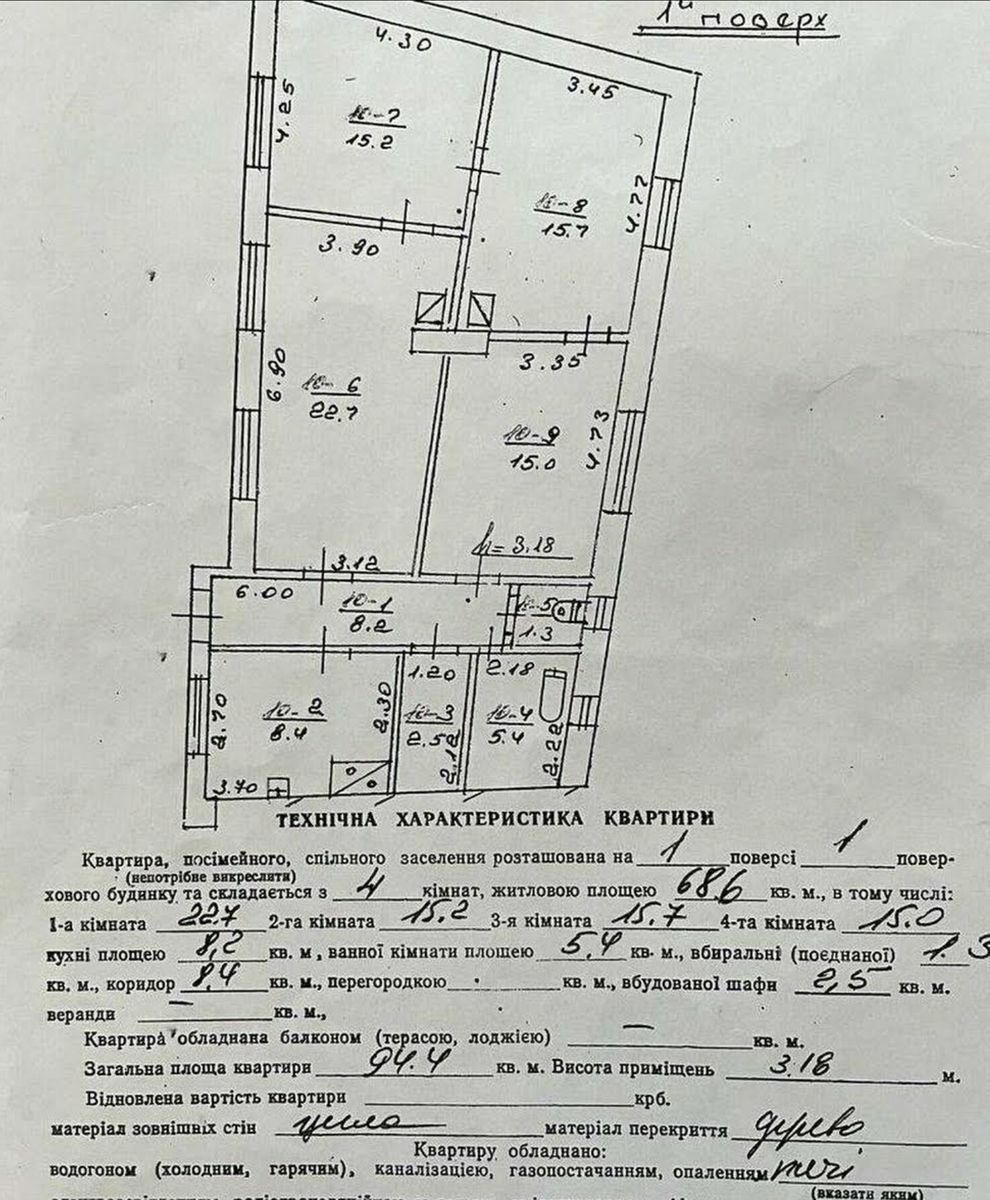 1й поверх
4.30
3.45
4.25
10-7
15.2
4.77
10-8
15.7
3.90
3.35
6.90
10-6
22.7
10-9
15.0
4.73
h=3.18
3.12
6.00
10-1
8.2
10-5
1.3
1.20
2.18
2.70
10-2
8.4
2.30
10-3
2.52
2.12
10-4
5.4
2.22
3.70
ТЕХНІЧНА ХАРАКТЕРИСТИКА КВАРТИРИ
Квартира, посімейного, спільного заселення розташована на 1 поверсі 1 повер-
(непотрібне викреслити)
хового будинку та складається з 4 кімнат, житловою площею 68.6 кв. м., в тому числі:
1-а кімната 22.7 2-га кімната 15.2 3-я кімната 15.7 4-та кімната 15.0
кухні площею 8,2 кв. м, ванної кімнати площею 5,4 кв. м., вбиральні (поєднаної) 1.3
кв. м., коридор 8,4 кв. м., перегородкою кв. м., вбудованої шафи 2,5 кв. м.
веранди — кв. м.,
Квартира обладнана балконом (терасою, лоджією) — кв. м.
Загальна площа квартири 94.4 кв. м. Висота приміщень 3.18 м.
Відновлена вартість квартири крб.
матеріал зовнішніх стін цегла матеріал перекриття дерево
Квартиру обладнано:
водогоном (холодним, гарячим), каналізацією, газопостачанням, опаленням печі
(вказати яким)